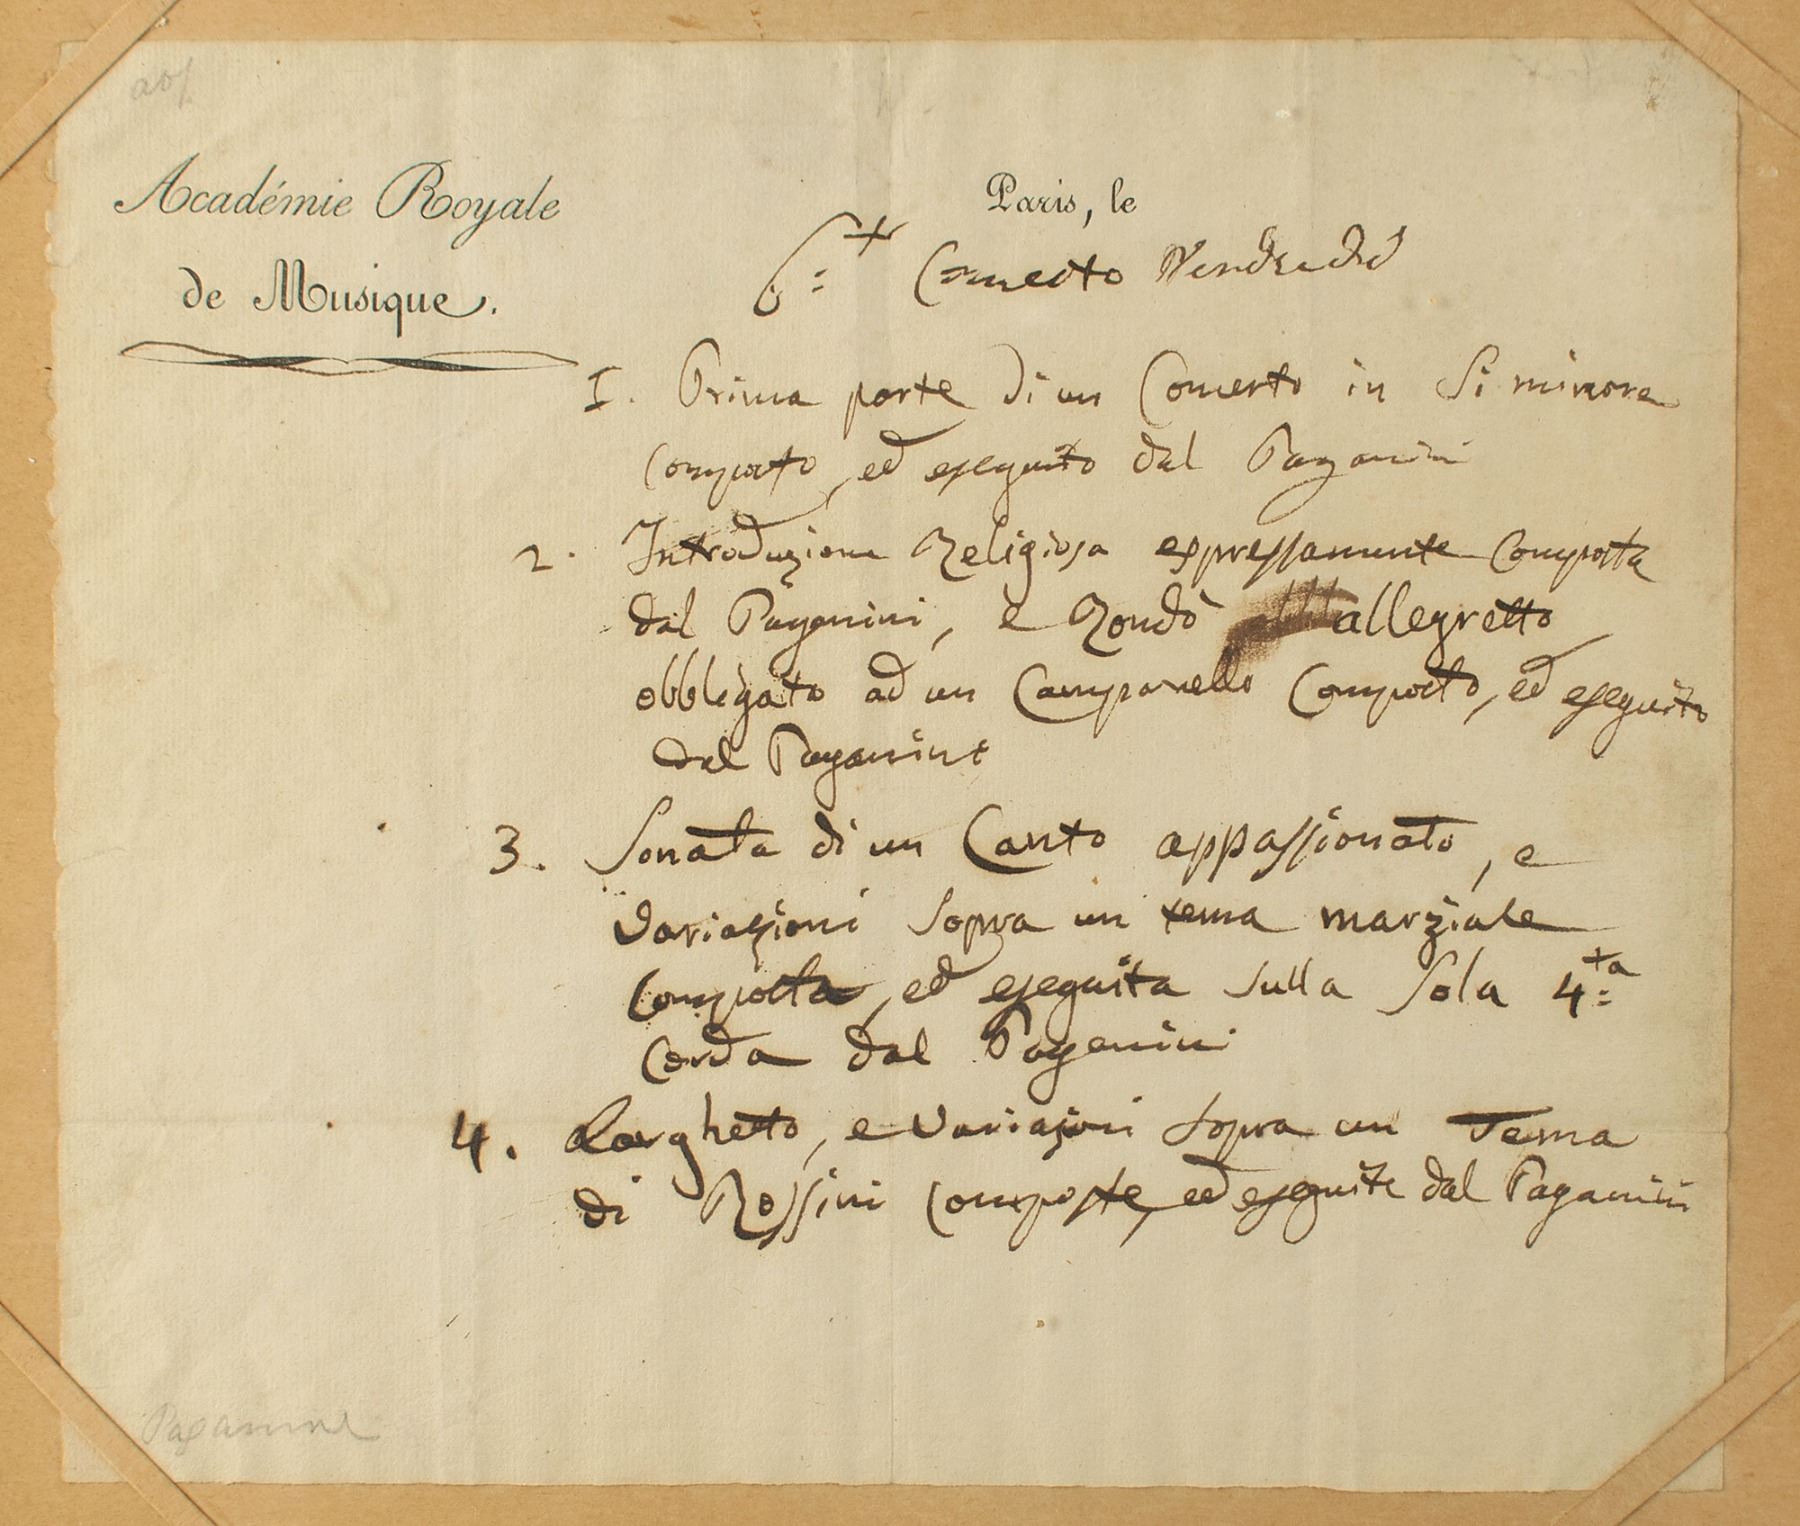 Académie Royale
de Musique.
Paris, le
6=x Concerto Vendredi
I. Prima parte di un Concerto in Si minore
Composto, ed eseguito dal Paganini
2. Introduzione Religiosa espressamente Composta
dal Paganini, e Rondò allegretto
obbligato ad un Campanello Composto, ed eseguito
dal Paganini
3. Sonata di un Canto appassionato, e
Variazioni Sopra un tema marziale
Composta, ed eseguita sulla Sola 4=ta
Corda dal Paganini
4. Larghetto, e Variazioni Sopra un Tema
di Rossini Composte, ed eseguite dal Paganini
Paganini